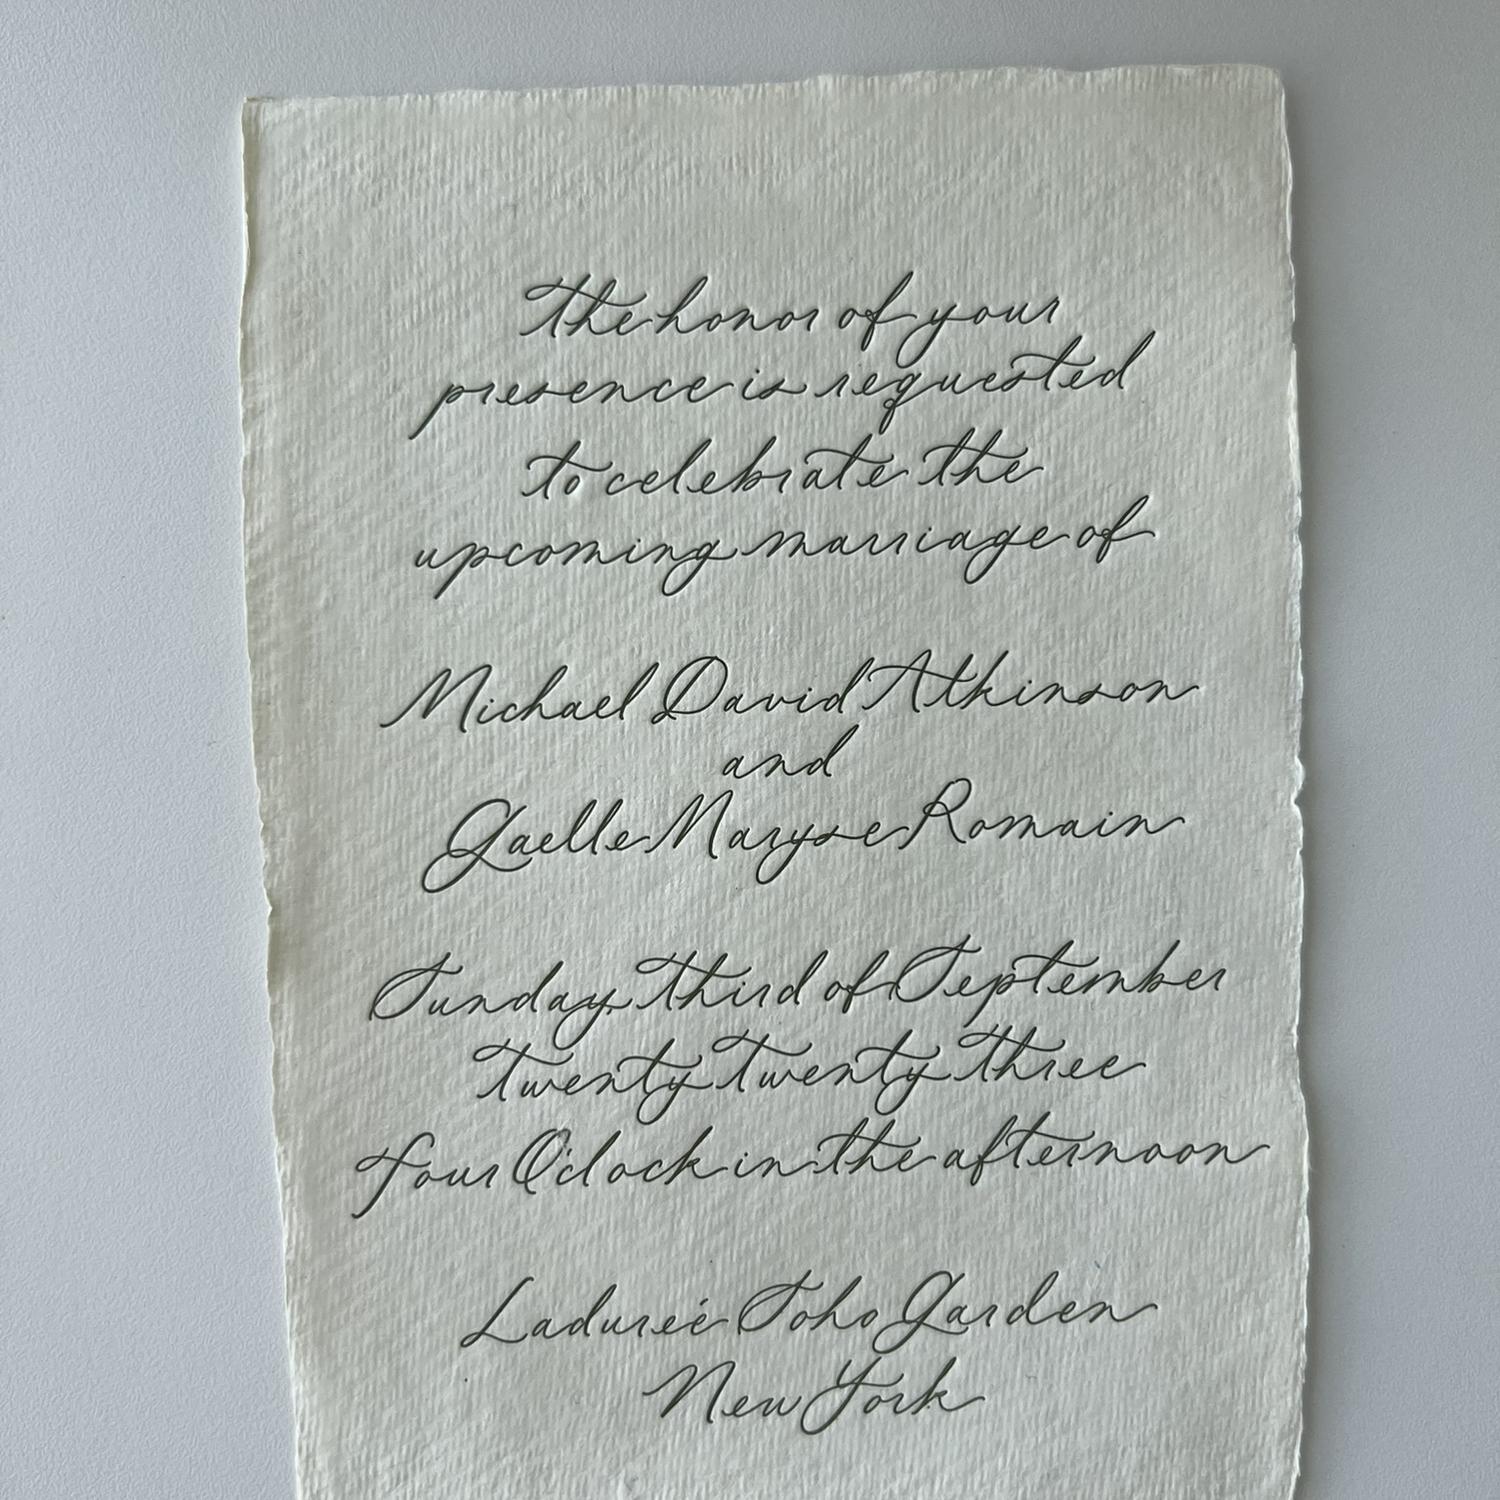 the honor of your
presence is requested
to celebrate the
upcoming marriage of
Michael David Atkinson
and
Gaelle Maryse Romain
Sunday, third of September
twenty twenty three
four O'clock in the afternoon
Ladureé Soho Garden
New York